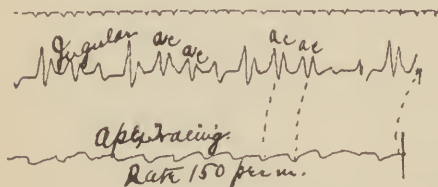 Jugular
ac
ac
ac
ac
Apex Tracing.
Rate 150 per m.